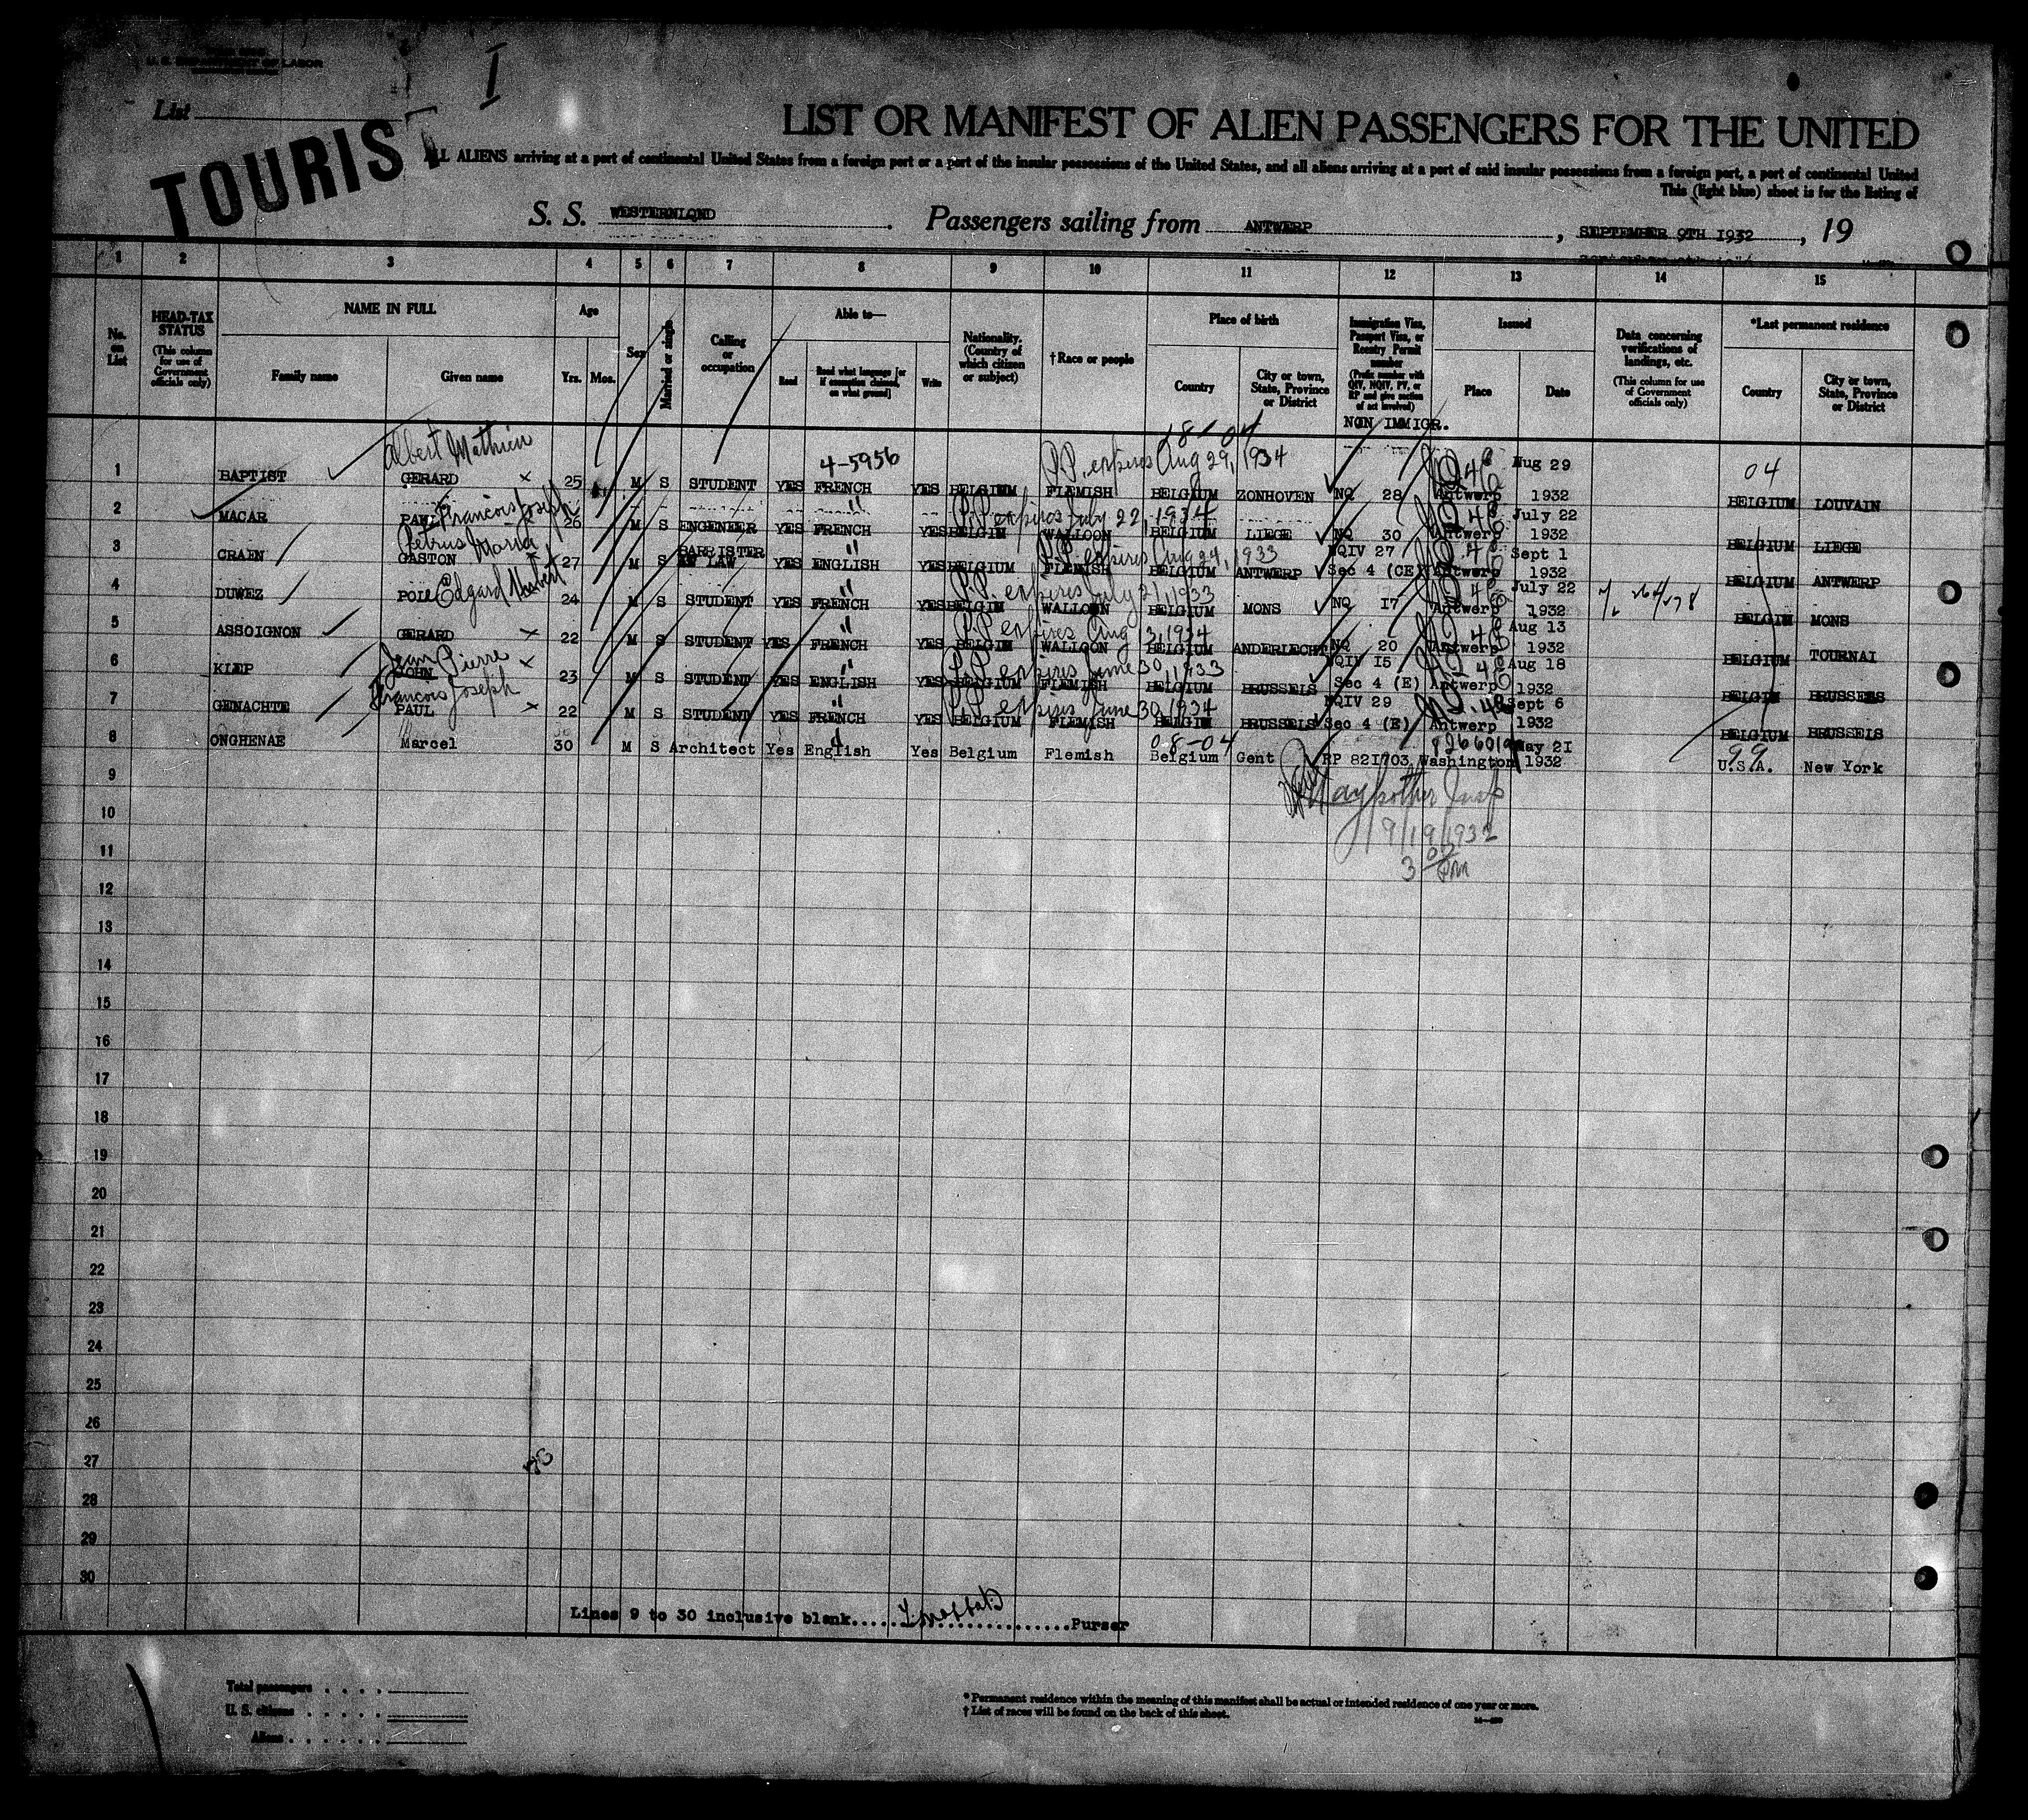 U. S. DEPARTMENT OF LABOR
I
List
TOURIST
LIST OR MANIFEST OF ALIEN PASSENGERS FOR THE UNITED
ALL ALIENS arriving at a port of continental United States from a foreign port or a port of the insular possessions of the United States, and all aliens arriving at a port of said insular possessions from a foreign port, a port of continental United
This (light blue) sheet is for the listing of
S. S. WESTERNLQND. Passengers sailing from ANTWERP, SEPTEMBER 9TH 1932, 19
1 2 3 4 5 6 7 8 9 10 11 12 13 14 15
No. on List
HEAD-TAX STATUS (This column for use of Government officials only)
NAME IN FULL
Family name
Given name
Age
Yrs. Mos.
Sex
Married or single
Calling or occupation
Able to—
Read
Read what language [or if exemption claimed, on what ground]
Write
Nationality. (Country of which citizen or subject)
†Race or people
Place of birth
Country
City or town, State, Province or District
Immigration Visa, Passport Visa, or Reentry Permit number (Prefix number with QIV, NQIV, PV, or RP and give section of act involved)
NON IMMIGR.
Issued
Place
Date
Data concerning verifications of landings, etc. (This column for use of Government officials only)
*Last permanent residence
Country
City or town, State, Province or District
Albert Mathieu 4-5956 P.P. expires Aug 29, 1934 Aug 29 04
1 BAPTIST GERARD x 25 M S STUDENT YES FRENCH YES BELGIUM FLEMISH BELGIUM ZONHOVEN NQ 28 Antwerp 1932 BELGIUM LOUVAIN
Francois Joseph " P.P. expires July 22, 1934 July 22
2 MACAR PAUL x 26 M S ENGENEER YES FRENCH YES BELGIM WALLOON BELGIUM LIEGE NQ 30 Antwerp 1932 BELGIUM LIEGE
Petrus Maria BARRISTER " P.P. expires Aug 29, 1933 NQIV 27 Sept 1
3 CRAEN GASTON x 27 M S AT LAW YES ENGLISH YES BELGIUM FLEMISH BELGIUM ANTWERP Sec 4 (CE) Antwerp 1932 BELGIUM ANTWERP
Edgard Hubert " P.P. expires July 21, 1933 July 22
4 DUWEZ POLE 24 M S STUDENT YES FRENCH YES BELGIM WALLOON BELGIUM MONS NQ I7 Antwerp 1932 BELGIUM MONS
" P.P. expires Aug 13, 1934 Aug 13
5 ASSOIGNON GERARD x 22 M S STUDENT YES FRENCH YES BELGIM WALLOON BELGIUM ANDERLECHT NQ 20 Antwerp 1932 BELGIUM TOURNAI
Jean Pierre " P.P. expires June 30, 1933 NQIV I5 Aug 18
6 KIEP JOHN x 23 M S STUDENT YES ENGLISH YES BELGIUM FLEMISH BELGIUM BRUSSELS Sec 4 (E) Antwerp 1932 BELGIM BRUSSELS
Francois Joseph " P.P. expires June 30, 1934 NQIV 29 Sept 6
7 GENACHTE PAUL x 22 M S STUDENT YES FRENCH YES BELGIUM FLEMISH BELGIM BRUSSELS Sec 4 (E) Antwerp 1932 BELGIUM BRUSSELS
08-04 May 2I 99
8 ONGHENAE Marcel 30 M S Architect Yes English Yes Belgium Flemish Belgium Gent RP 82I703 Washington 1932 U.S.A. New York
9
10
9/19/1932
11
3 00 PM
12
13
14
15
16
17
18
19
20
21
22
23
24
25
26
27
28
29
30
Lines 9 to 30 inclusive blank.....................Purser
Total passengers . . . .
U. S. citizens . . . . .
Aliens . . . . . .
* Permanent residence within the meaning of this manifest shall be actual or intended residence of one year or more.
† List of races will be found on the back of this sheet.